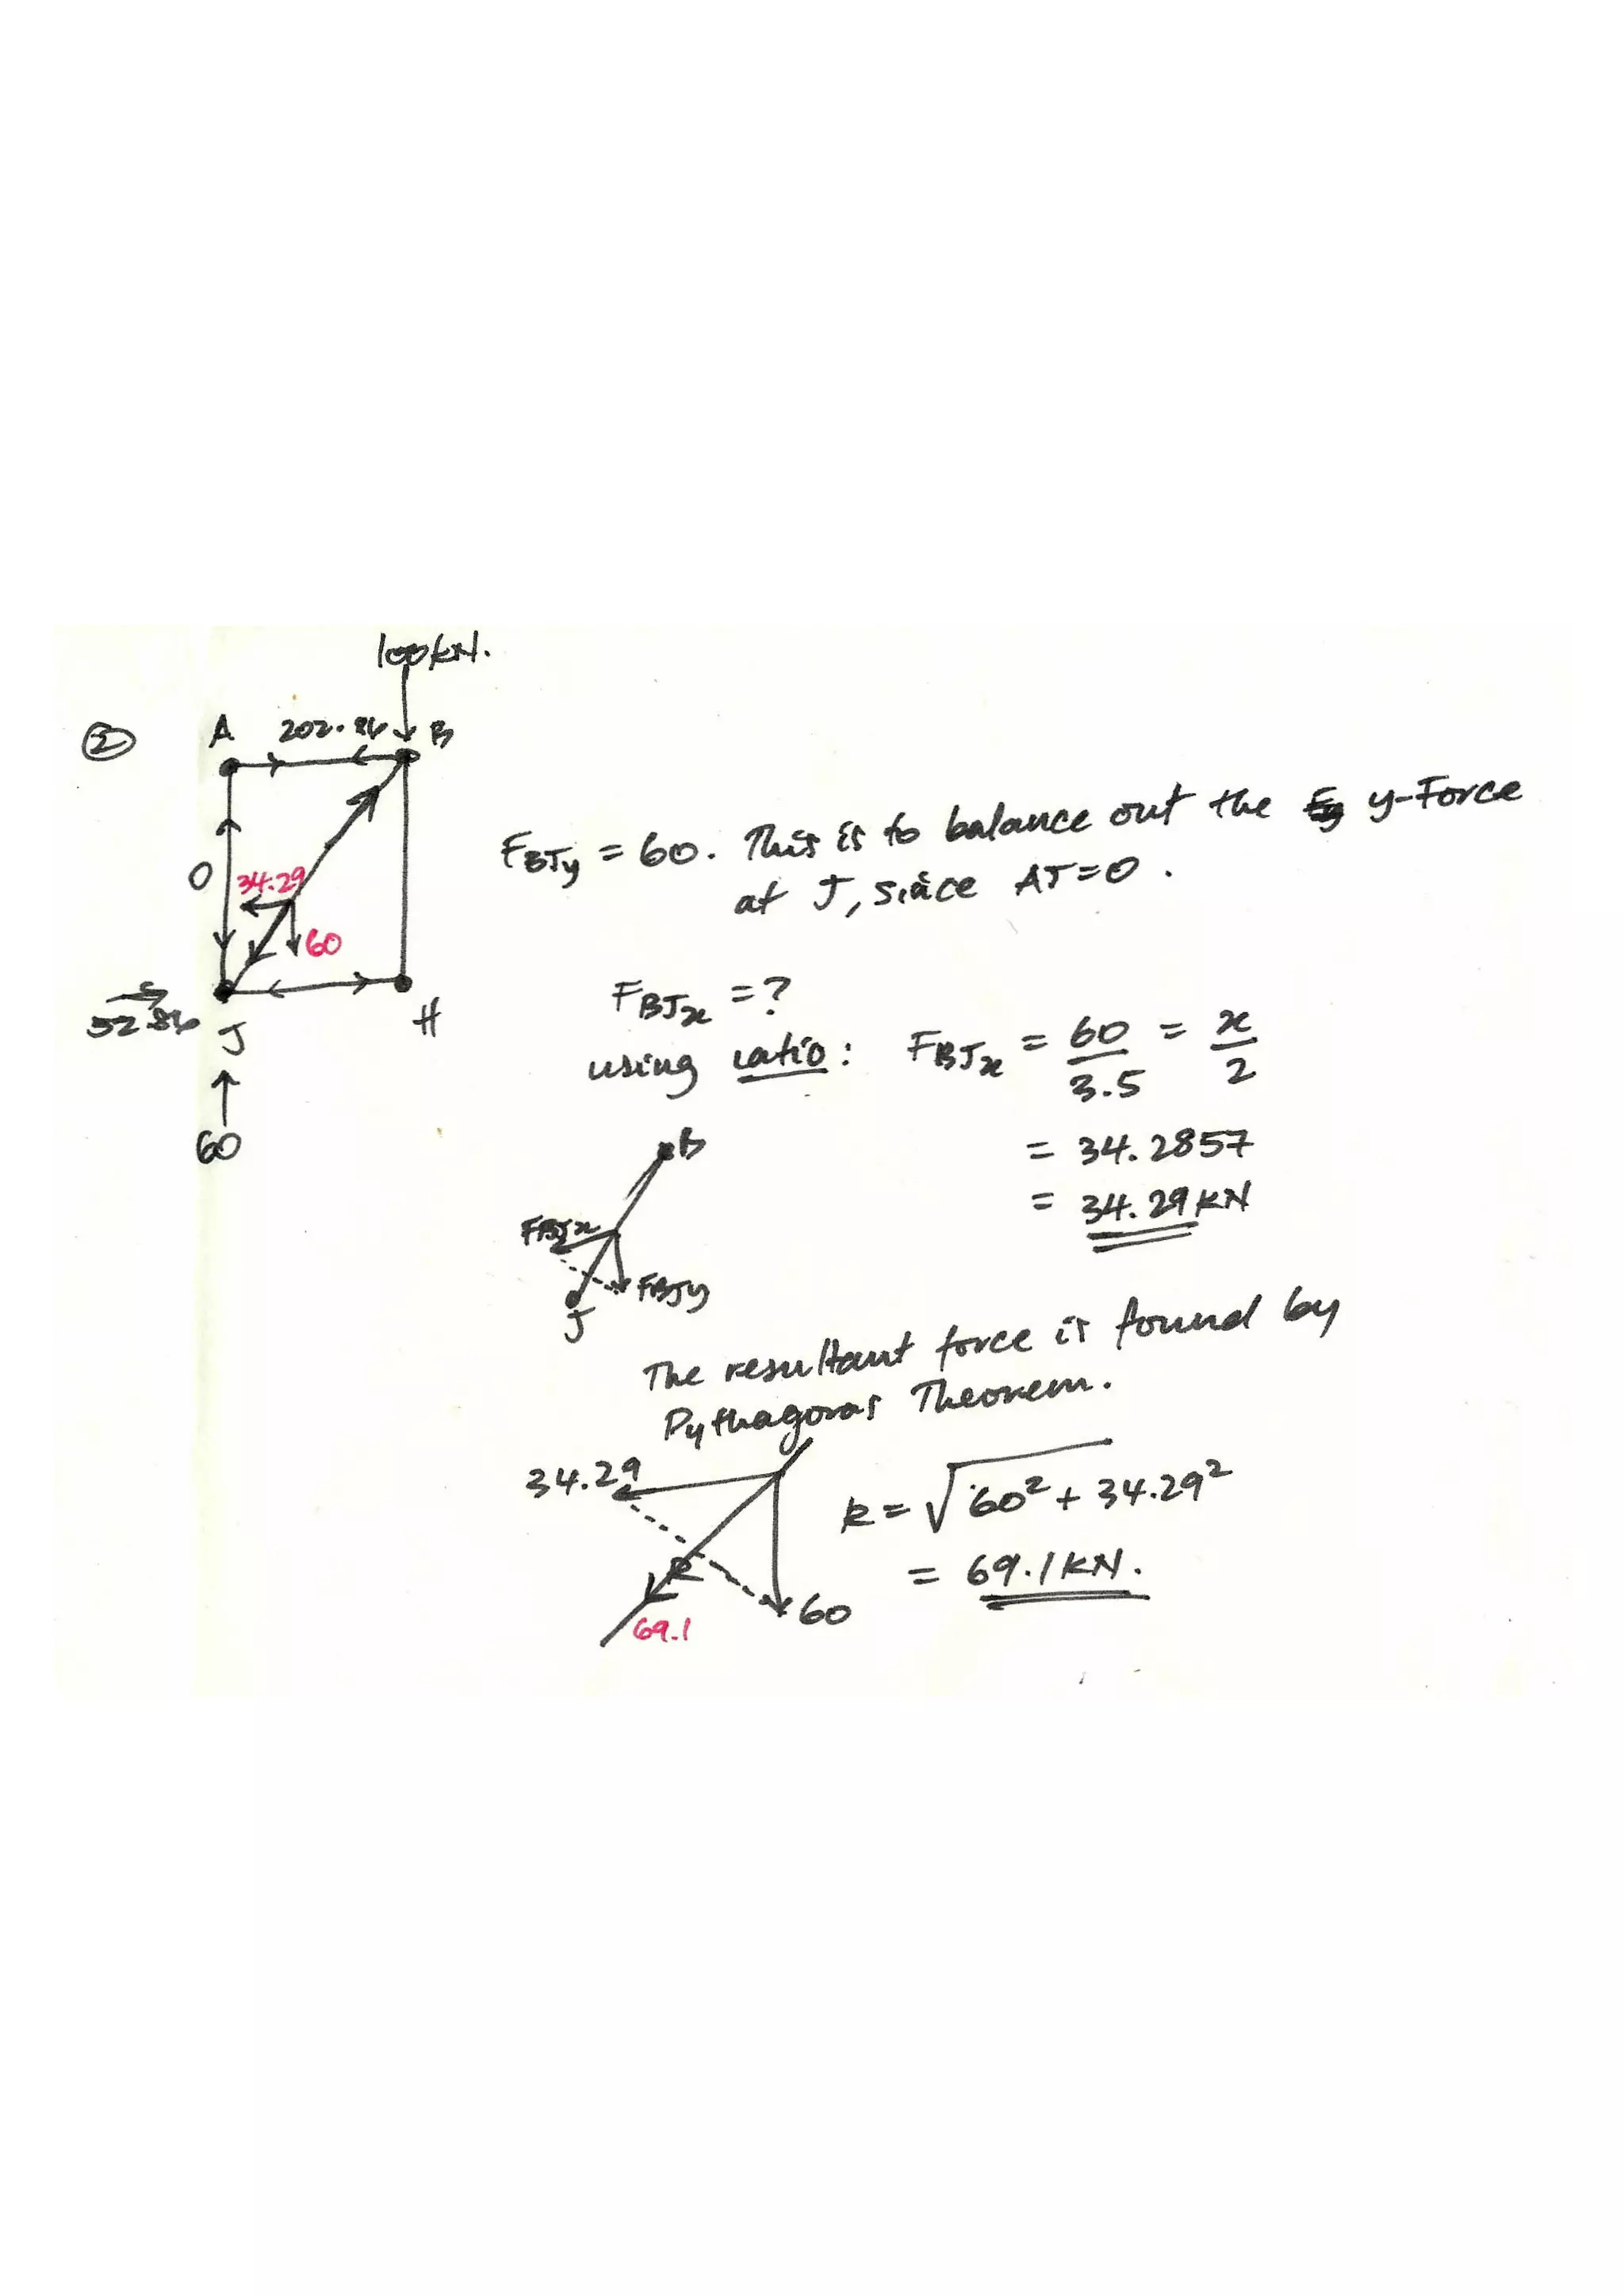 100KN.
②
A
202.86
B
0
34.29
60
52.86
J
H
60
FBJy = 60. This is to balance out the y-Force
at J, since AJ=0.
FBJx = ?
using ratio: FBJx = 60/3.5 = x/2
= 34.2857
= 34.29KN
B
FBJx
FBJy
J
The resultant force is found by
Pythagoras Theorem.
34.29
R = √60² + 34.29²
= 69.1KN.
R
60
69.1